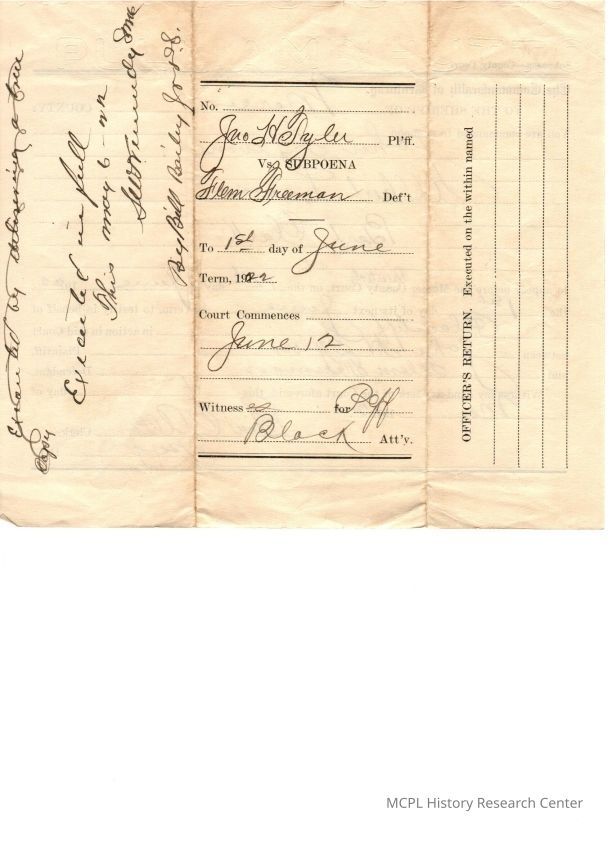 Executed by delivering a true
copy
Executed in full
This may 6 - 02
Kennedy
By Bill Bailey
No.
Jno H Tyler Pl'ff.
Vs. SUBPOENA
Flem Freeman Def't
To 1st day of June
Term, 1902
Court Commences
June 12
Witness es for Plff
Black Att'y.
OFFICER'S RETURN. Executed on the within named
MCPL History Research Center